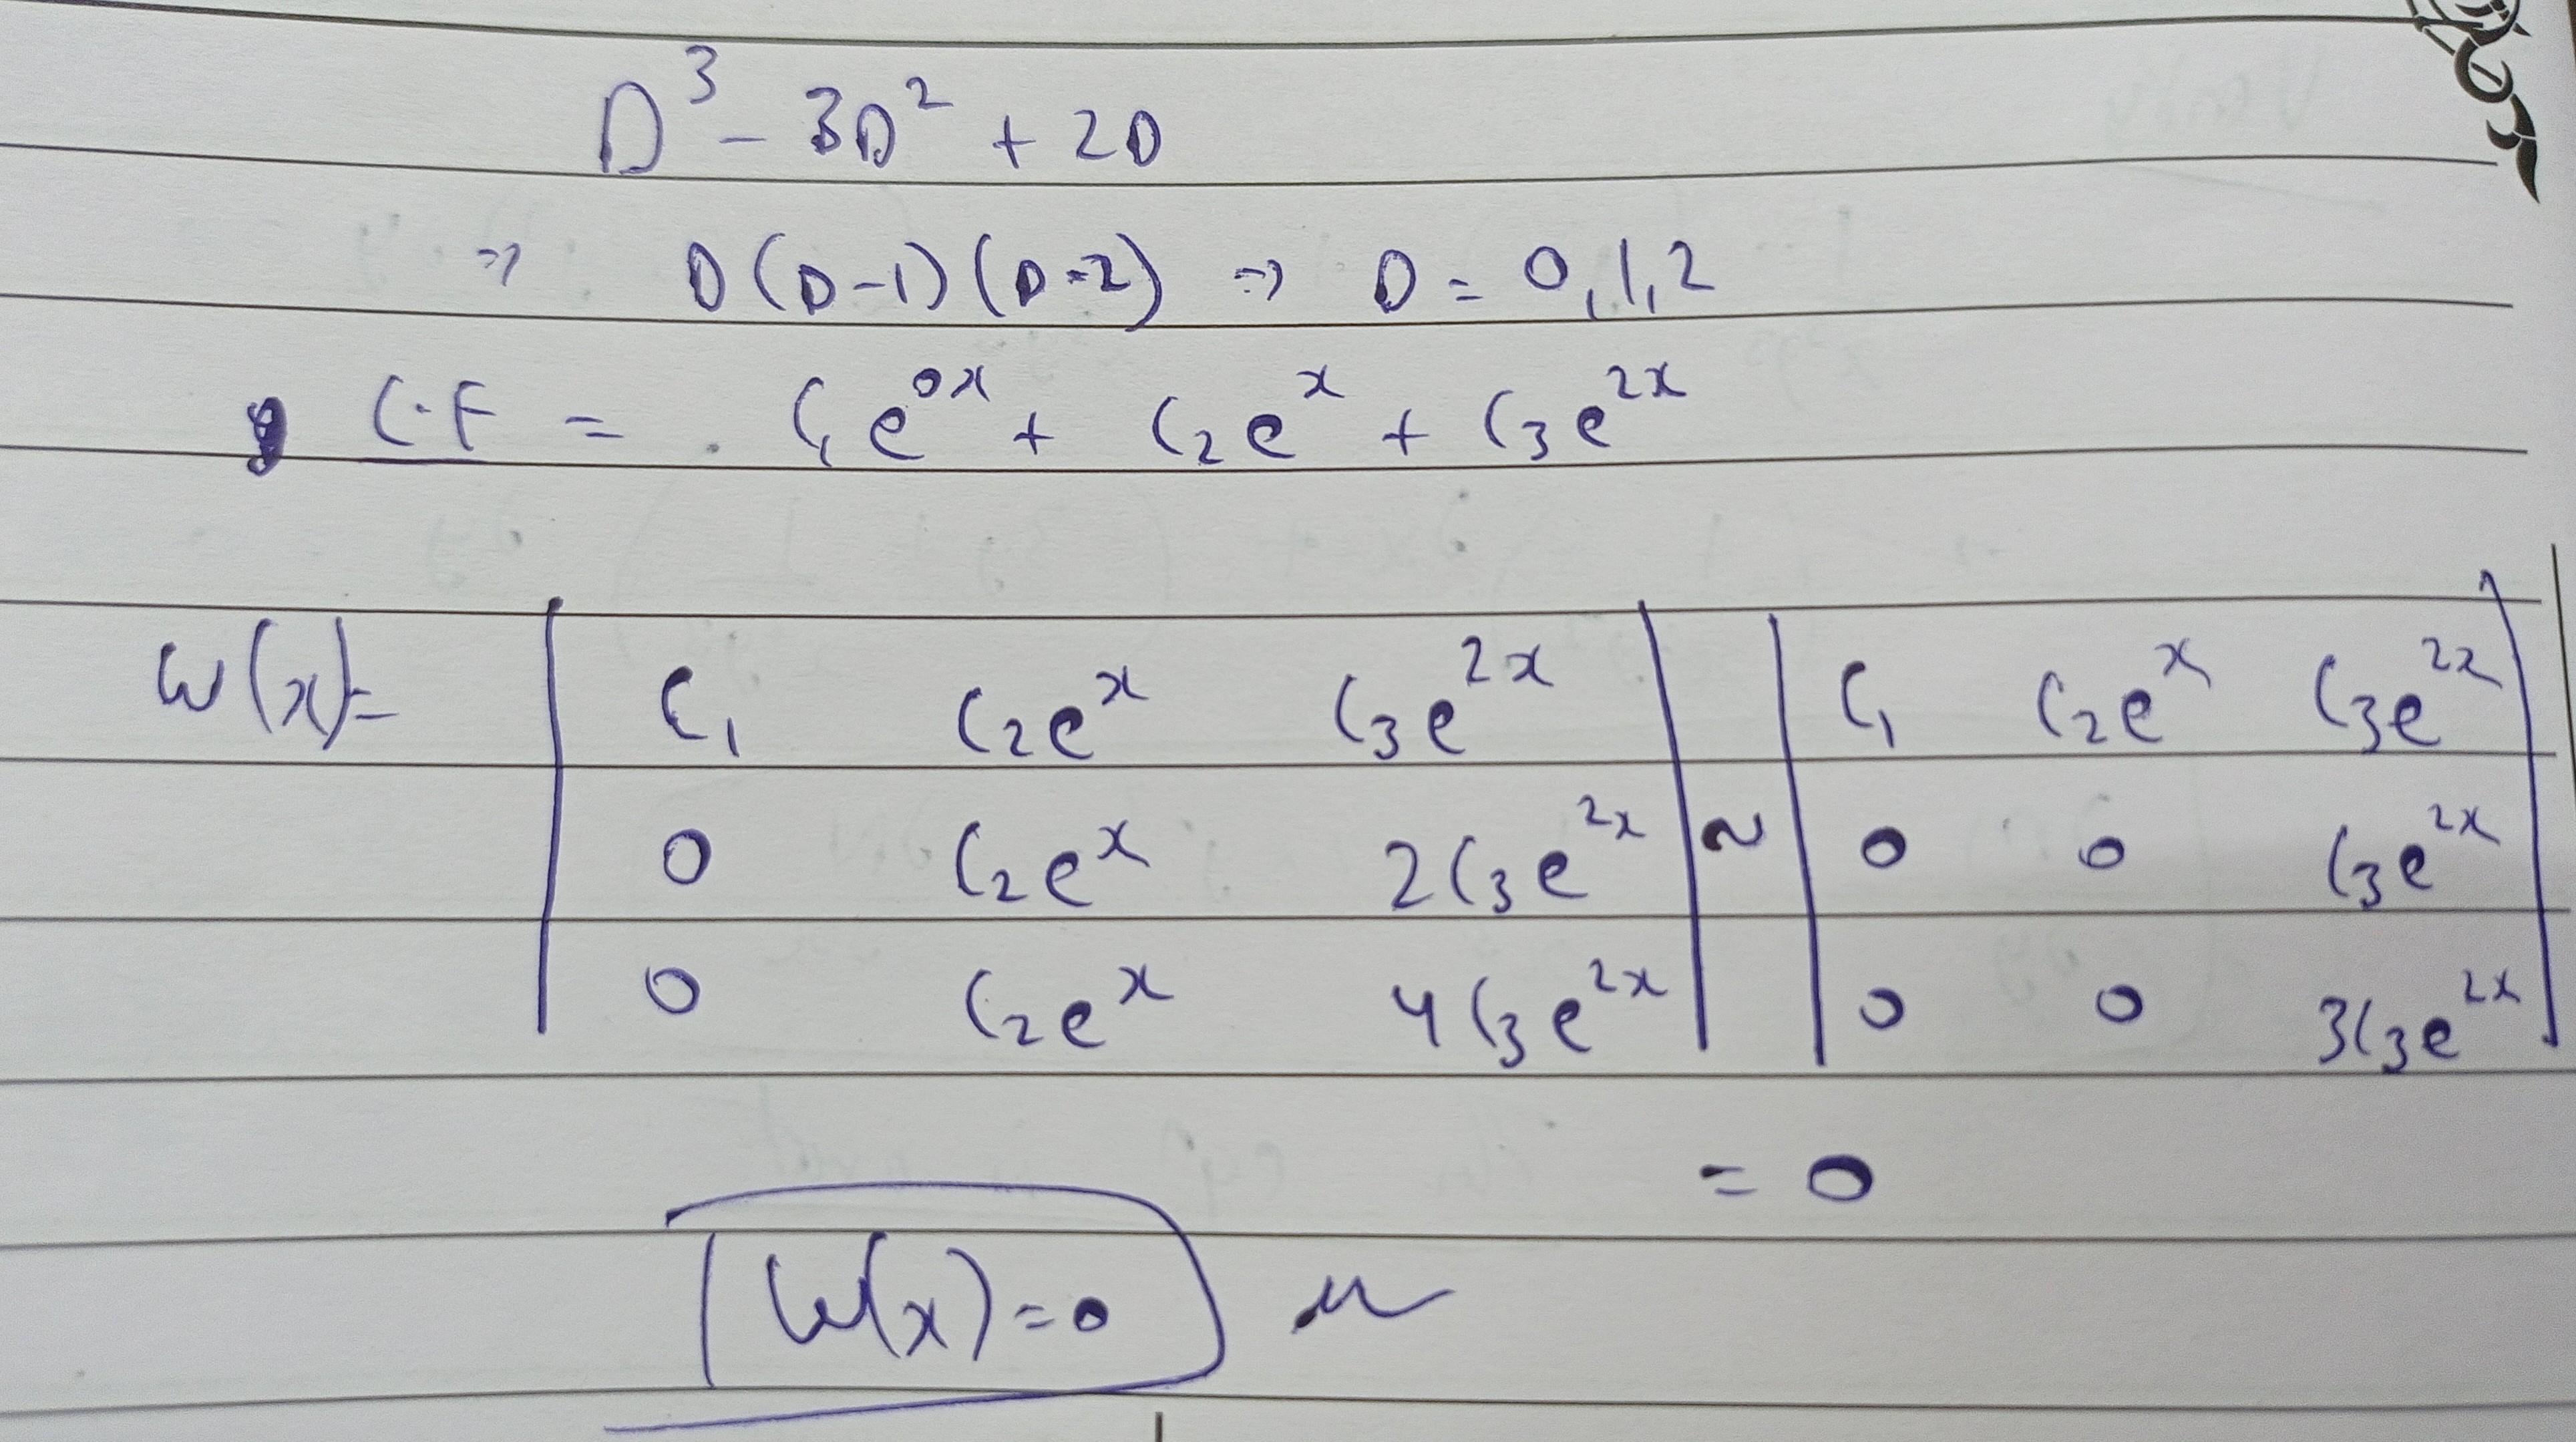 D³ - 3D² + 2D
⇒ D(D-1)(D-2) ⇒ D = 0,1,2
C.F = C₁e⁰ˣ + C₂eˣ + C₃e²ˣ
W(x)= | C₁ C₂eˣ C₃e²ˣ | ~ | C₁ C₂eˣ C₃e²ˣ |
| 0 C₂eˣ 2C₃e²ˣ | | 0 0 C₃e²ˣ |
| 0 C₂eˣ 4C₃e²ˣ | | 0 0 3C₃e²ˣ |
= 0
W(x)=0